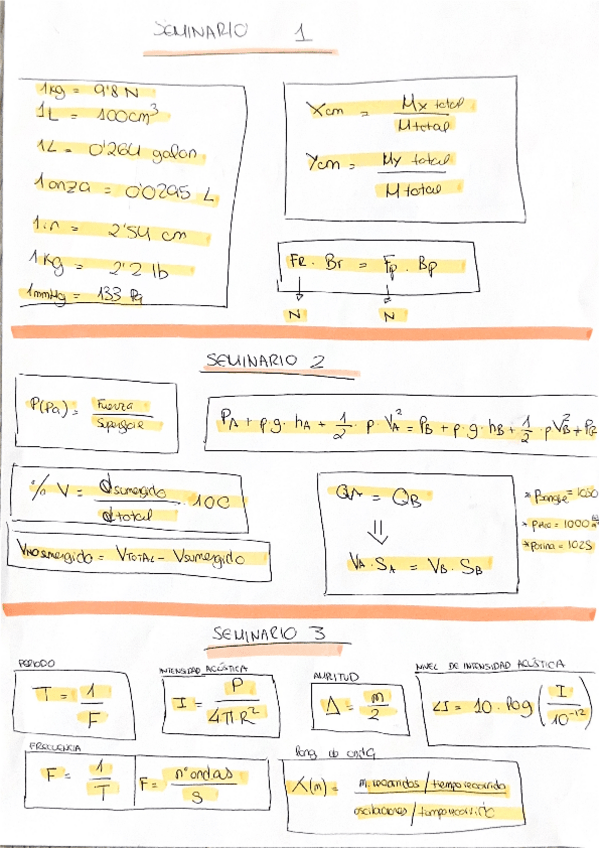 SEMINARIO 1
1kg = 9'8 N
1L = 100cm³
1L = 0'264 galon
1 onza = 0'0295 L
1in = 2'54 cm
1 Kg = 2'2 lb
1mmHg = 133 Pa
Xcm = Mx total / M total
Ycm = My total / M total
FR · Br = Fp · Bp
N N
SEMINARIO 2
P(Pa) = Fuerza / Superficie
PA + ρ·g·hA + 1/2 · ρ · VA² = PB + ρ·g·hB + 1/2 · ρ VB² + PR
% V = d sumergido / d total · 100
VNO sumergido = VTOTAL - Vsumergido
QA = QB
⇓
VA · SA = VB · SB
* ρsangre = 1050
= 1000
* ρorina = 1025
SEMINARIO 3
PERIODO
T = 1 / F
INTENSIDAD ACÚSTICA
I = P / 4πR²
AMPLITUD
Δ = m / 2
NIVEL DE INTENSIDAD ACÚSTICA
LI = 10 · log (I / 10⁻¹²)
FRECUENCIA
F = 1 / T
F = nº ondas / S
Long de
λ(m) = m recorridos / tiempo recorrido
oscilaciones / tiempo recorrido